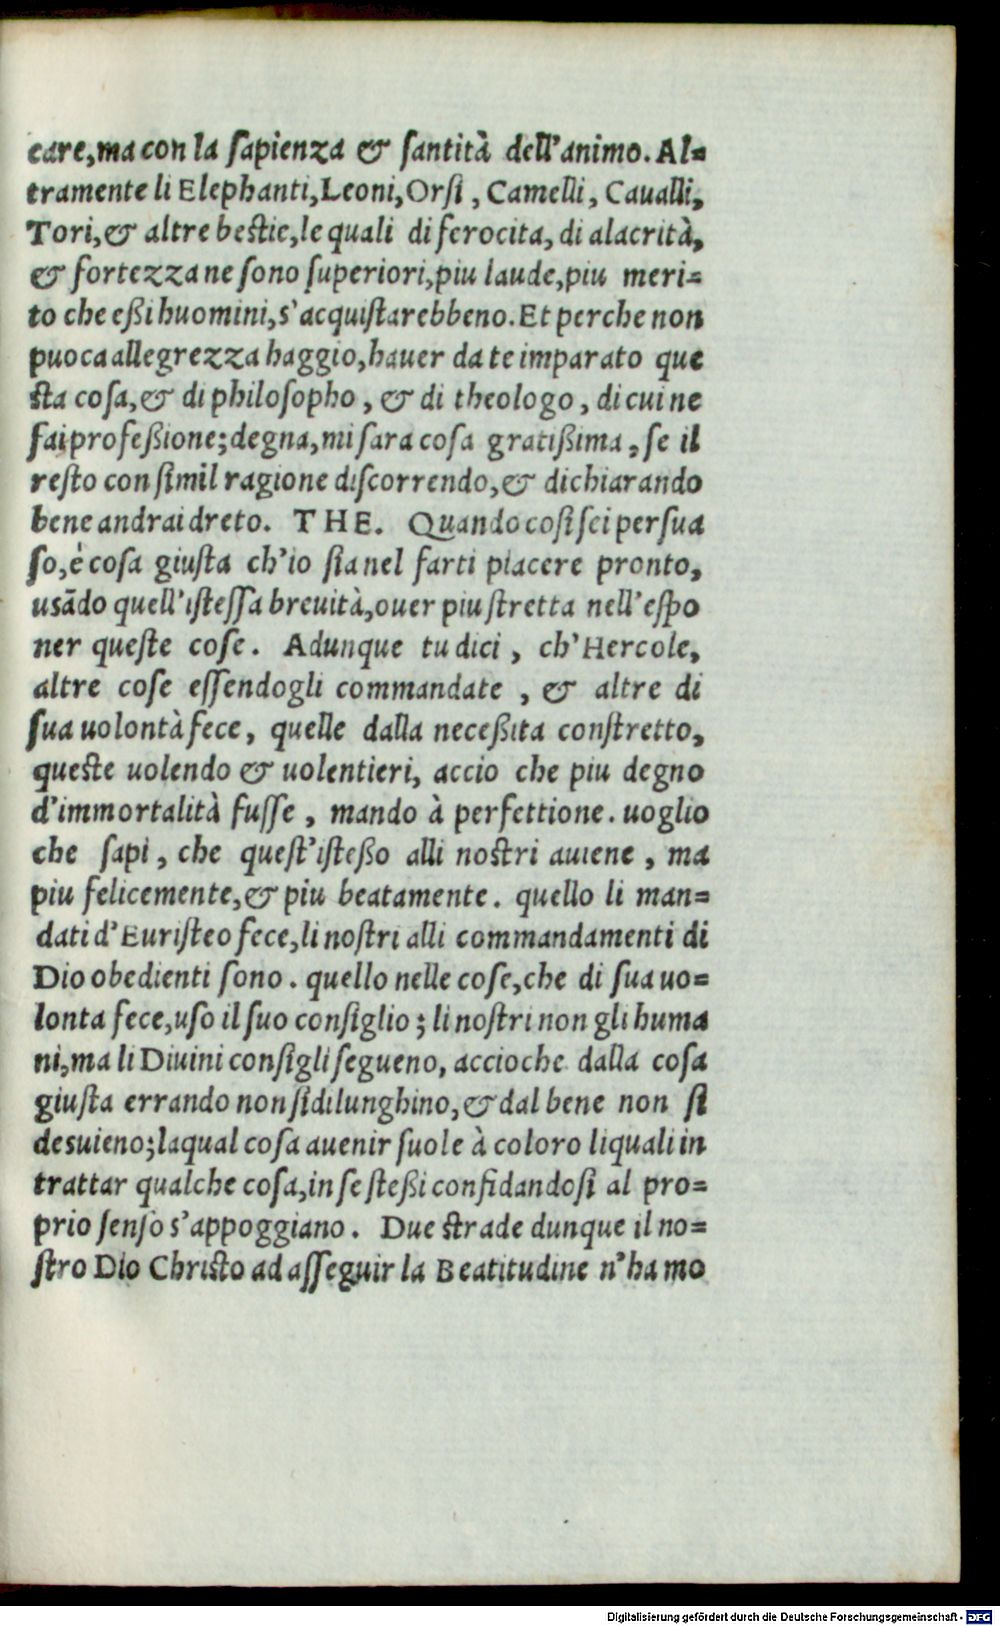 care, ma con la sapienza & santità dell'animo. Al=
tramente li Elephanti, Leoni, Orsi, Camelli, Caualli,
Tori, & altre bestie, le quali di ferocita, di alacrità,
& fortezza ne sono superiori, piu laude, piu meri=
to che eßi huomini, s'acquistarebbeno. Et perche non
puoca allegrezza haggio, hauer da te imparato que
sta cosa, & di philosopho, & di theologo, di cui ne
fai profeßione; degna, mi sara cosa gratißima, se il
resto con simil ragione discorrendo, & dichiarando
bene andrai dreto. THE. Quando cosi sei persua
so, è cosa giusta ch'io sia nel farti piacere pronto,
usãdo quell'istessa breuità, ouer piu stretta nell'espo
ner queste cose. Adunque tu dici, ch'Hercole,
altre cose essendogli commandate, & altre di
sua uolontà fece, quelle dalla neceßita constretto,
queste uolendo & uolentieri, accio che piu degno
d'immortalità fusse, mando à perfettione. uoglio
che sapi, che quest'isteßo alli nostri auiene, ma
piu felicemente, & piu beatamente. quello li man=
dati d'Euristeo fece, li nostri alli commandamenti di
Dio obedienti sono. quello nelle cose, che di sua uo=
lonta fece, uso il suo consiglio; li nostri non gli huma
ni, ma li Diuini consigli segueno, accioche dalla cosa
giusta errando non si dilunghino, & dal bene non si
desuieno; laqual cosa auenir suole à coloro liquali in
trattar qualche cosa, in se steßi confidandosi al pro=
prio senso s'appoggiano. Due strade dunque il no=
stro Dio Christo ad asseguir la Beatitudine n'ha mo
Digitalisierung gefördert durch die Deutsche Forschungsgemeinschaft - DFG